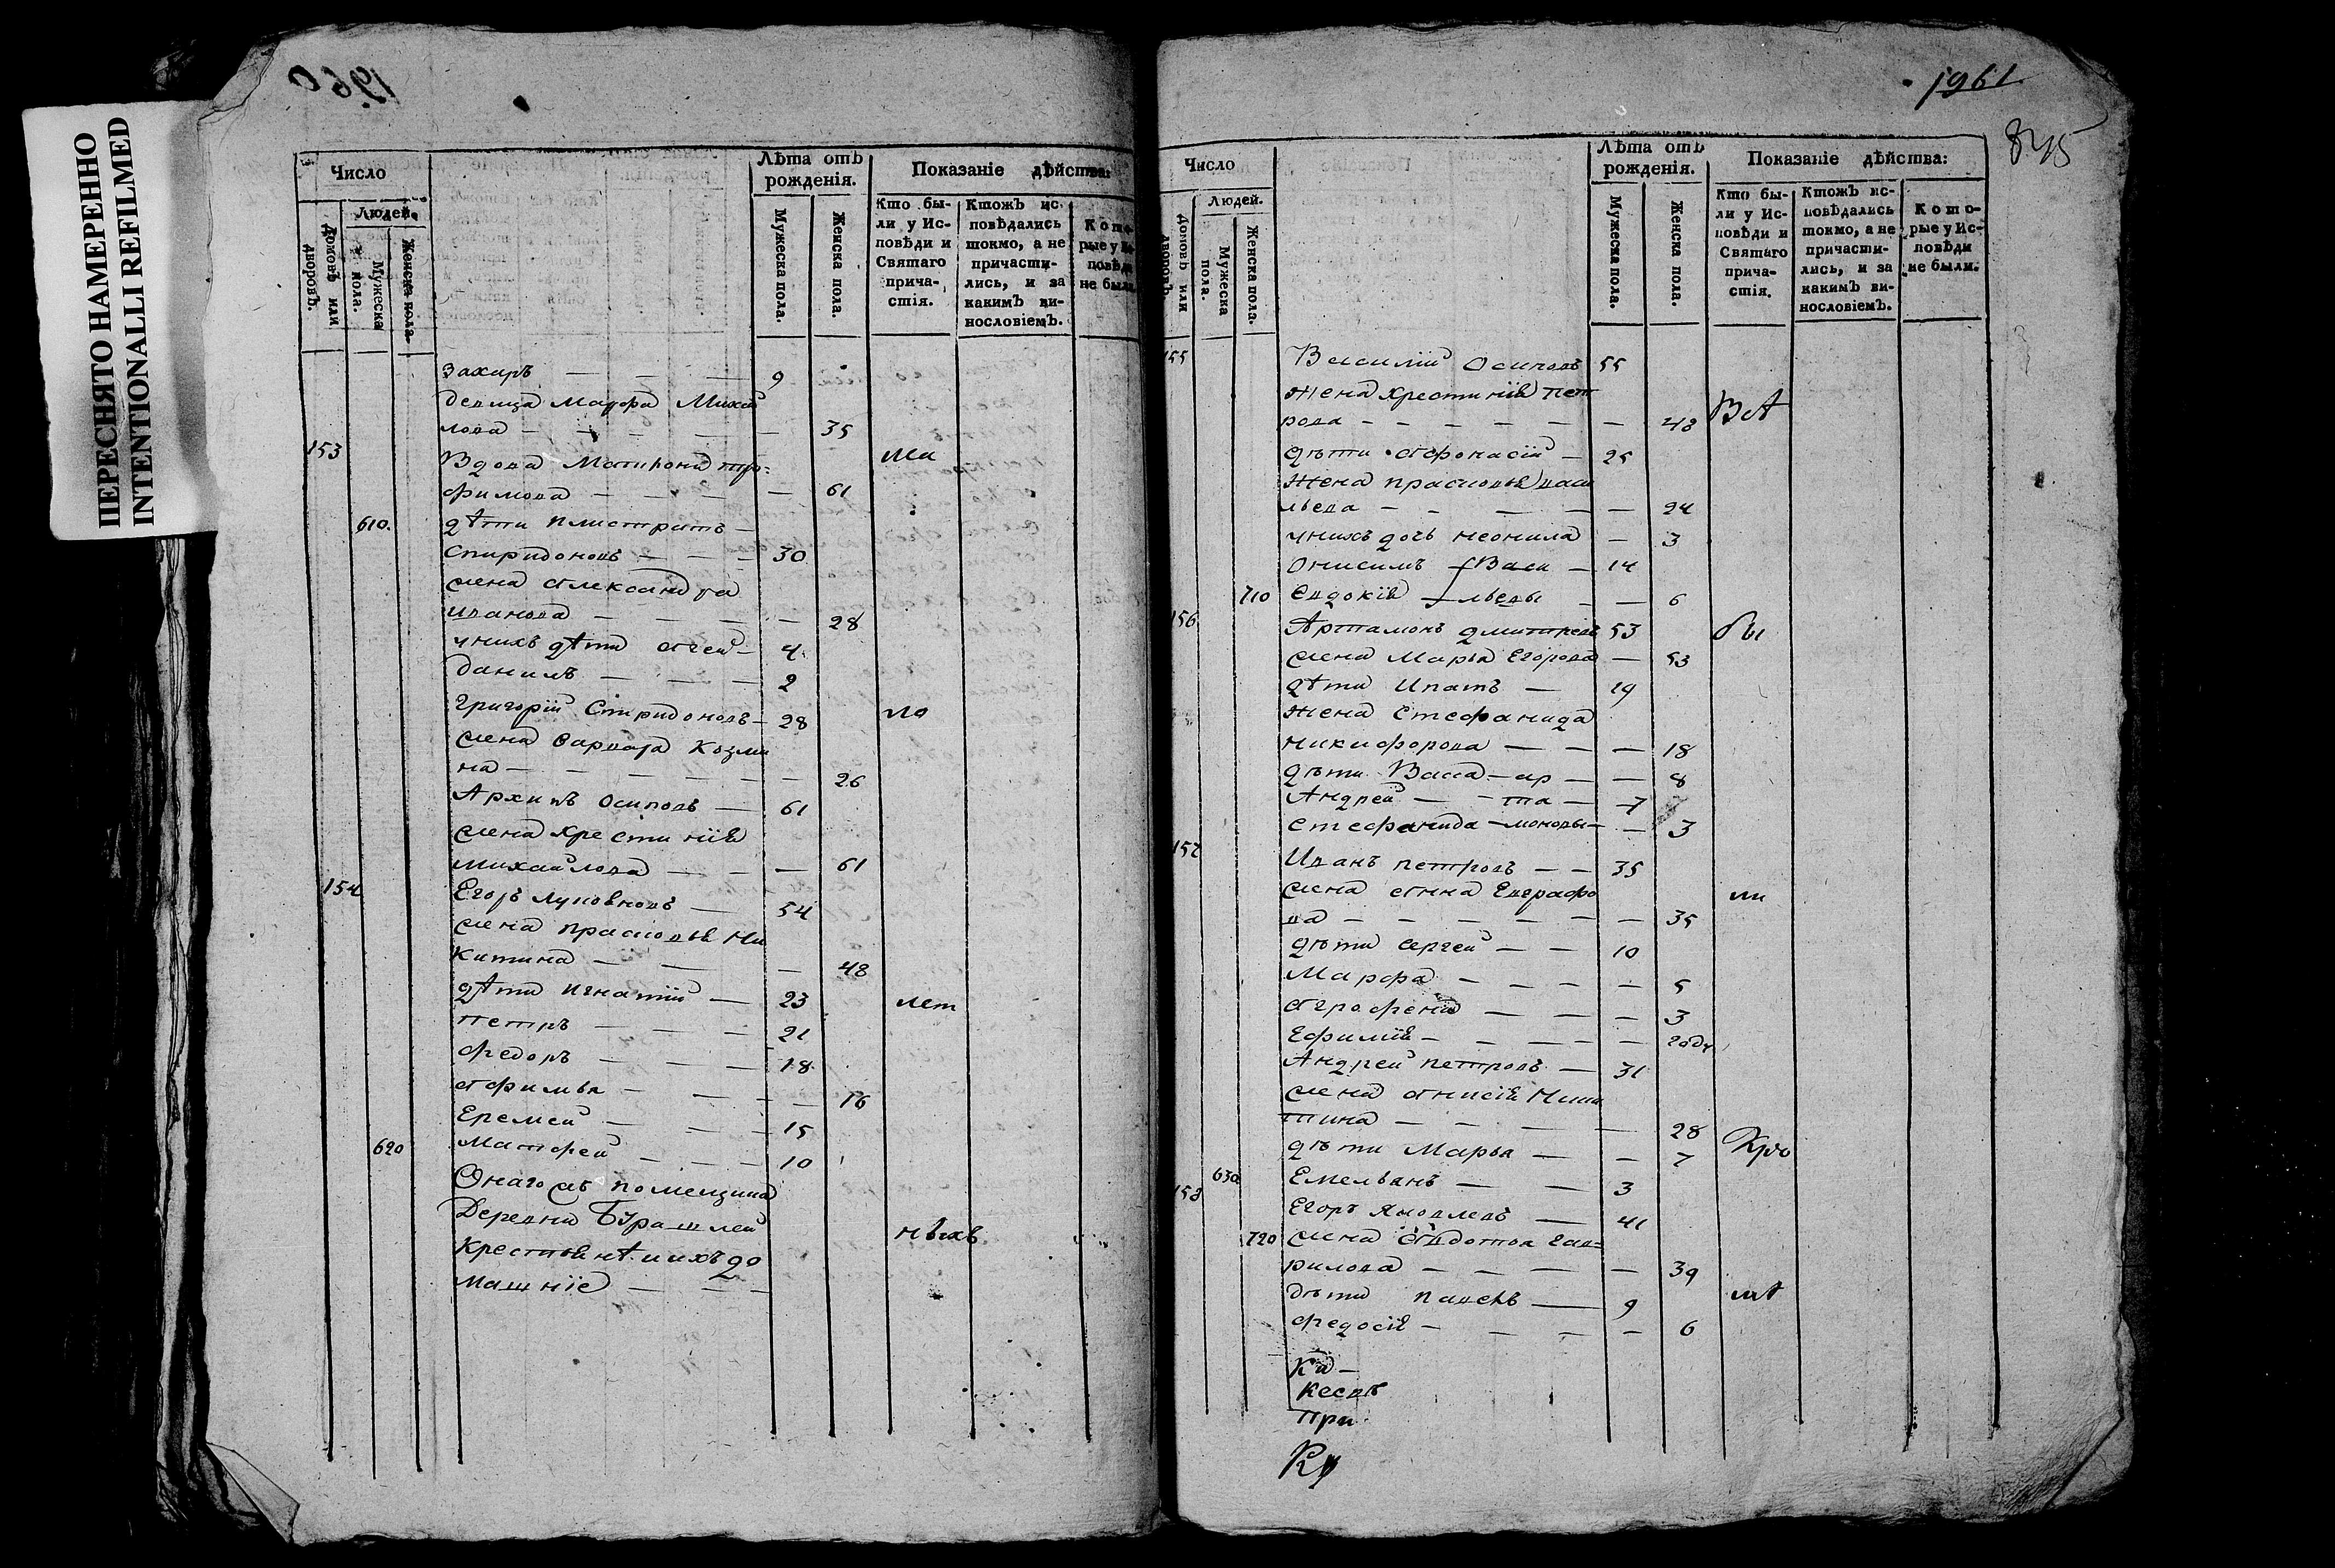 ПЕРЕСНЯТО НАМЕРЕННО
INTENTIONALLI REFILMED
1960
Число
Людей.
Домовъ или дворовъ.
Мужеска пола.
Женска пола.
Лѣта отъ рожденія.
Мужеска пола.
Женска пола.
Показаніе дѣйства:
Кто были у Исповѣди и Святаго причастія.
Ктожъ исповѣдались токмо, а не причастились, и за какимъ виносло­віемъ.
Которые у Исповѣди не были.
Захаръ — — — 9
девица Марфа Михай
лова — — — — 35
153 Вдова Матирона тро= ма
фимова — — — — 61
610. дѣти
Спиридоновъ — — — 30
жена Александра
Иванова — — — — 28
унихъ дѣти Агей — 4
данилъ — — — 2
Григорій Спиридоновъ — 28 ло
жена варвара Козми
на — — — — — 26
Архипъ Осиповъ — 61
жена хрестинія
Михайлова — — — 61
154 Егоръ — 54
жена прасковья Ни
китина — — — 48
дѣти Игнатій — 23 лет
петръ — — — 21
федоръ — — — 18
афимья — — — — 16
Еремей — — — 15
620 Матфей — — — 10
Онагожъ помещика
Деревни Бурашлеи ныхъ
Крестьянѣ иихъ до
машніе — — —
1961
845
Число
Людей.
Домовъ или дворовъ.
Мужеска пола.
Женска пола.
Лѣта отъ рожденія.
Мужеска пола.
Женска пола.
Показаніе дѣйства:
Кто были у Исповѣди и Святаго причастія.
Ктожъ исповѣдались токмо, а не причастились, и за какимъ виносло­віемъ.
Которые у Исповѣди не были.
155 Василій Осиповъ 55
жена хрестинія пет
рова — — — — — — 48 Всѣ
дѣти Афонасій — 25
жена прасковья васи
льева — — — — — 24
унихъ дочь неонила — 3
Онисимъ — Васи — 14
710 Евдокія — льевы — — 6
156 Артамонъ дмитревъ 53 бы
жена Марья Егорова — 53
дѣти Ипатъ — 19
жена Стефанида
никифорова — — — 18
дѣти Васса — ар — — 8
Андрей — — та — 7
стефанида — моновы — — 3
157 Иванъ петровъ — — 35
жена анна Евграфо ли
ва — — — — — — 35
дѣти Сергей — — 10
Марфа — — — — 5
аграфена — — — — 3
Ефимія — — — — — году
Андрей петровъ — 31
жена анисія Ники
тина — — — — — 28
дѣти Марья — — 7 Кро
630 Емельянъ — — 3
158 Егоръ яковлевъ — 41
720 жена авдотья гав=
рилова — — — — — 39
дѣти павелъ — 9 мѣ
федосія — — — — 6
Ка —
кесвъ
При
Ку